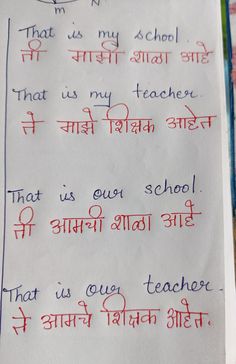 m N
That is my school.
ती माझी शाळा आहे
That is my teacher.
ते माझे शिक्षक आहेत
That is our school.
ती आमची शाळा आहे
That is our teacher.
ते आमचे शिक्षक आहेत.